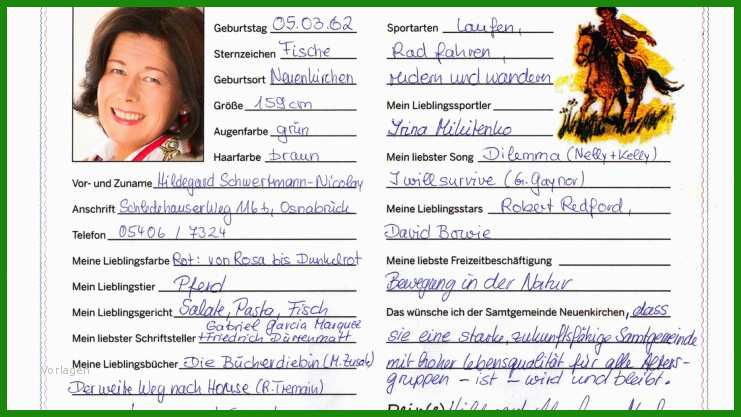 Geburtstag 05.03.62
Sternzeichen Fische
Geburtsort Neuenkirchen
Größe 159cm
Augenfarbe grün
Haarfarbe braun
Vor- und Zuname Hildegard Schwertmann-Nicolay
Anschrift Schledehauser Weg 116 b, Osnabrück
Telefon 05406 / 7324
Meine Lieblingsfarbe Rot: von Rosa bis Dunkelrot
Mein Lieblingstier Pferd
Mein Lieblingsgericht Salate, Pasta, Fisch
Gabriel Garcia Marquez
Mein liebster Schriftsteller Friedrich Dürrenmatt
Meine Lieblingsbücher Die Bücherdiebin (M. Zusak)
Der weite Weg nach Hause (R. Tremain)
Vorlagen
Sportarten Laufen,
Rad fahren,
rudern und wandern
Mein Lieblingssportler
Irina Mikitenko
Mein liebster Song Dilemma (Nelly + Kelly)
I will survive (G. Gaynor)
Meine Lieblingsstars Robert Redford,
David Bowie
Meine liebste Freizeitbeschäftigung
Bewegung in der Natur
Das wünsche ich der Samtgemeinde Neuenkirchen, dass
sie eine starke, zukunftsfähige Samtgemeinde
mit hoher Lebensqualität für alle Alters-
gruppen - ist - wird und bleibt.